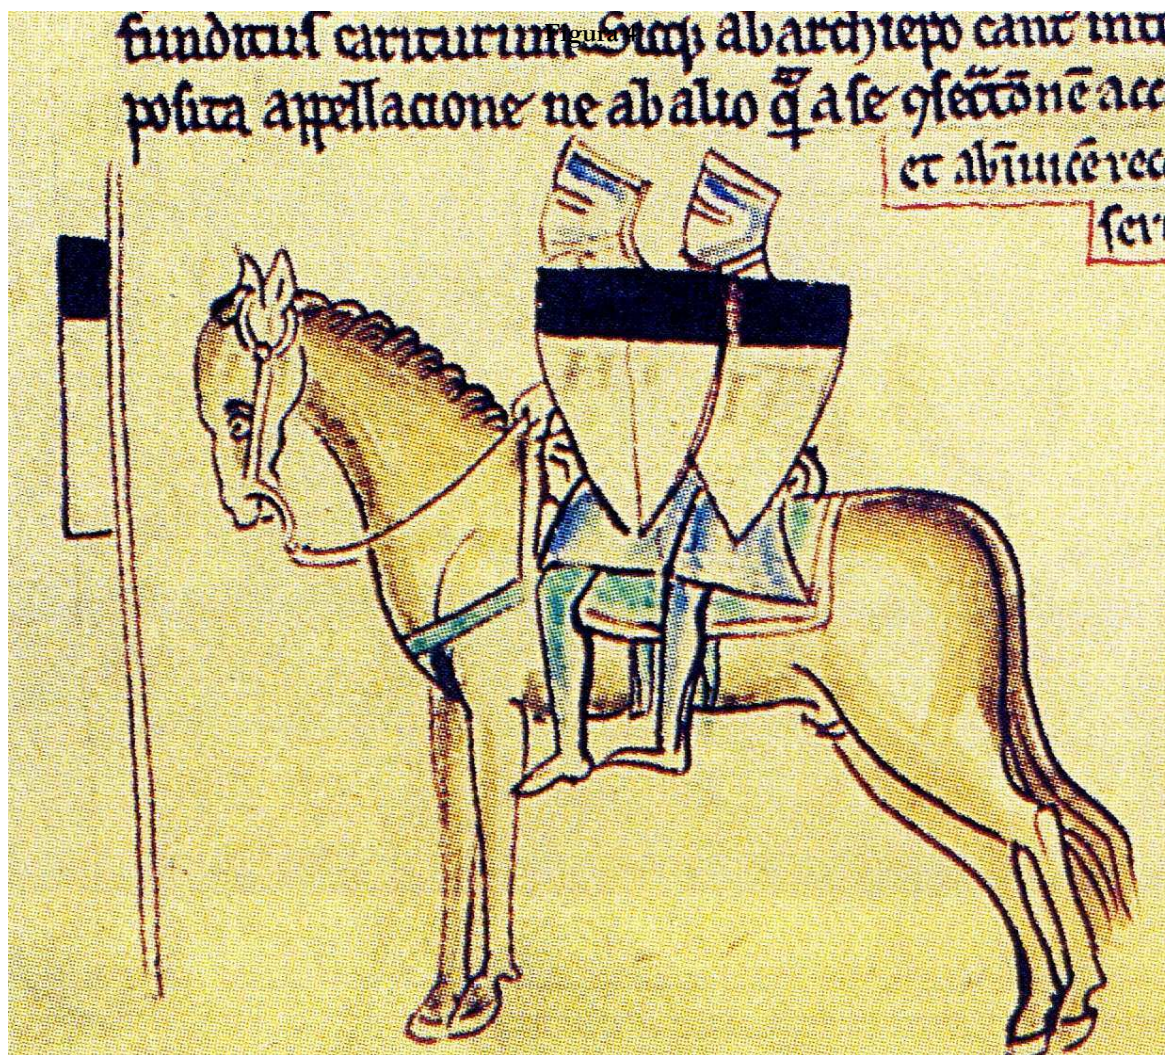 Figura 4
funditus cariturum Sicqꝫ ab archiepo cant̄ int
posita appellacione ne ab alio q̄ a se ꝯsecc̄onē acc
et ab īuicē rec